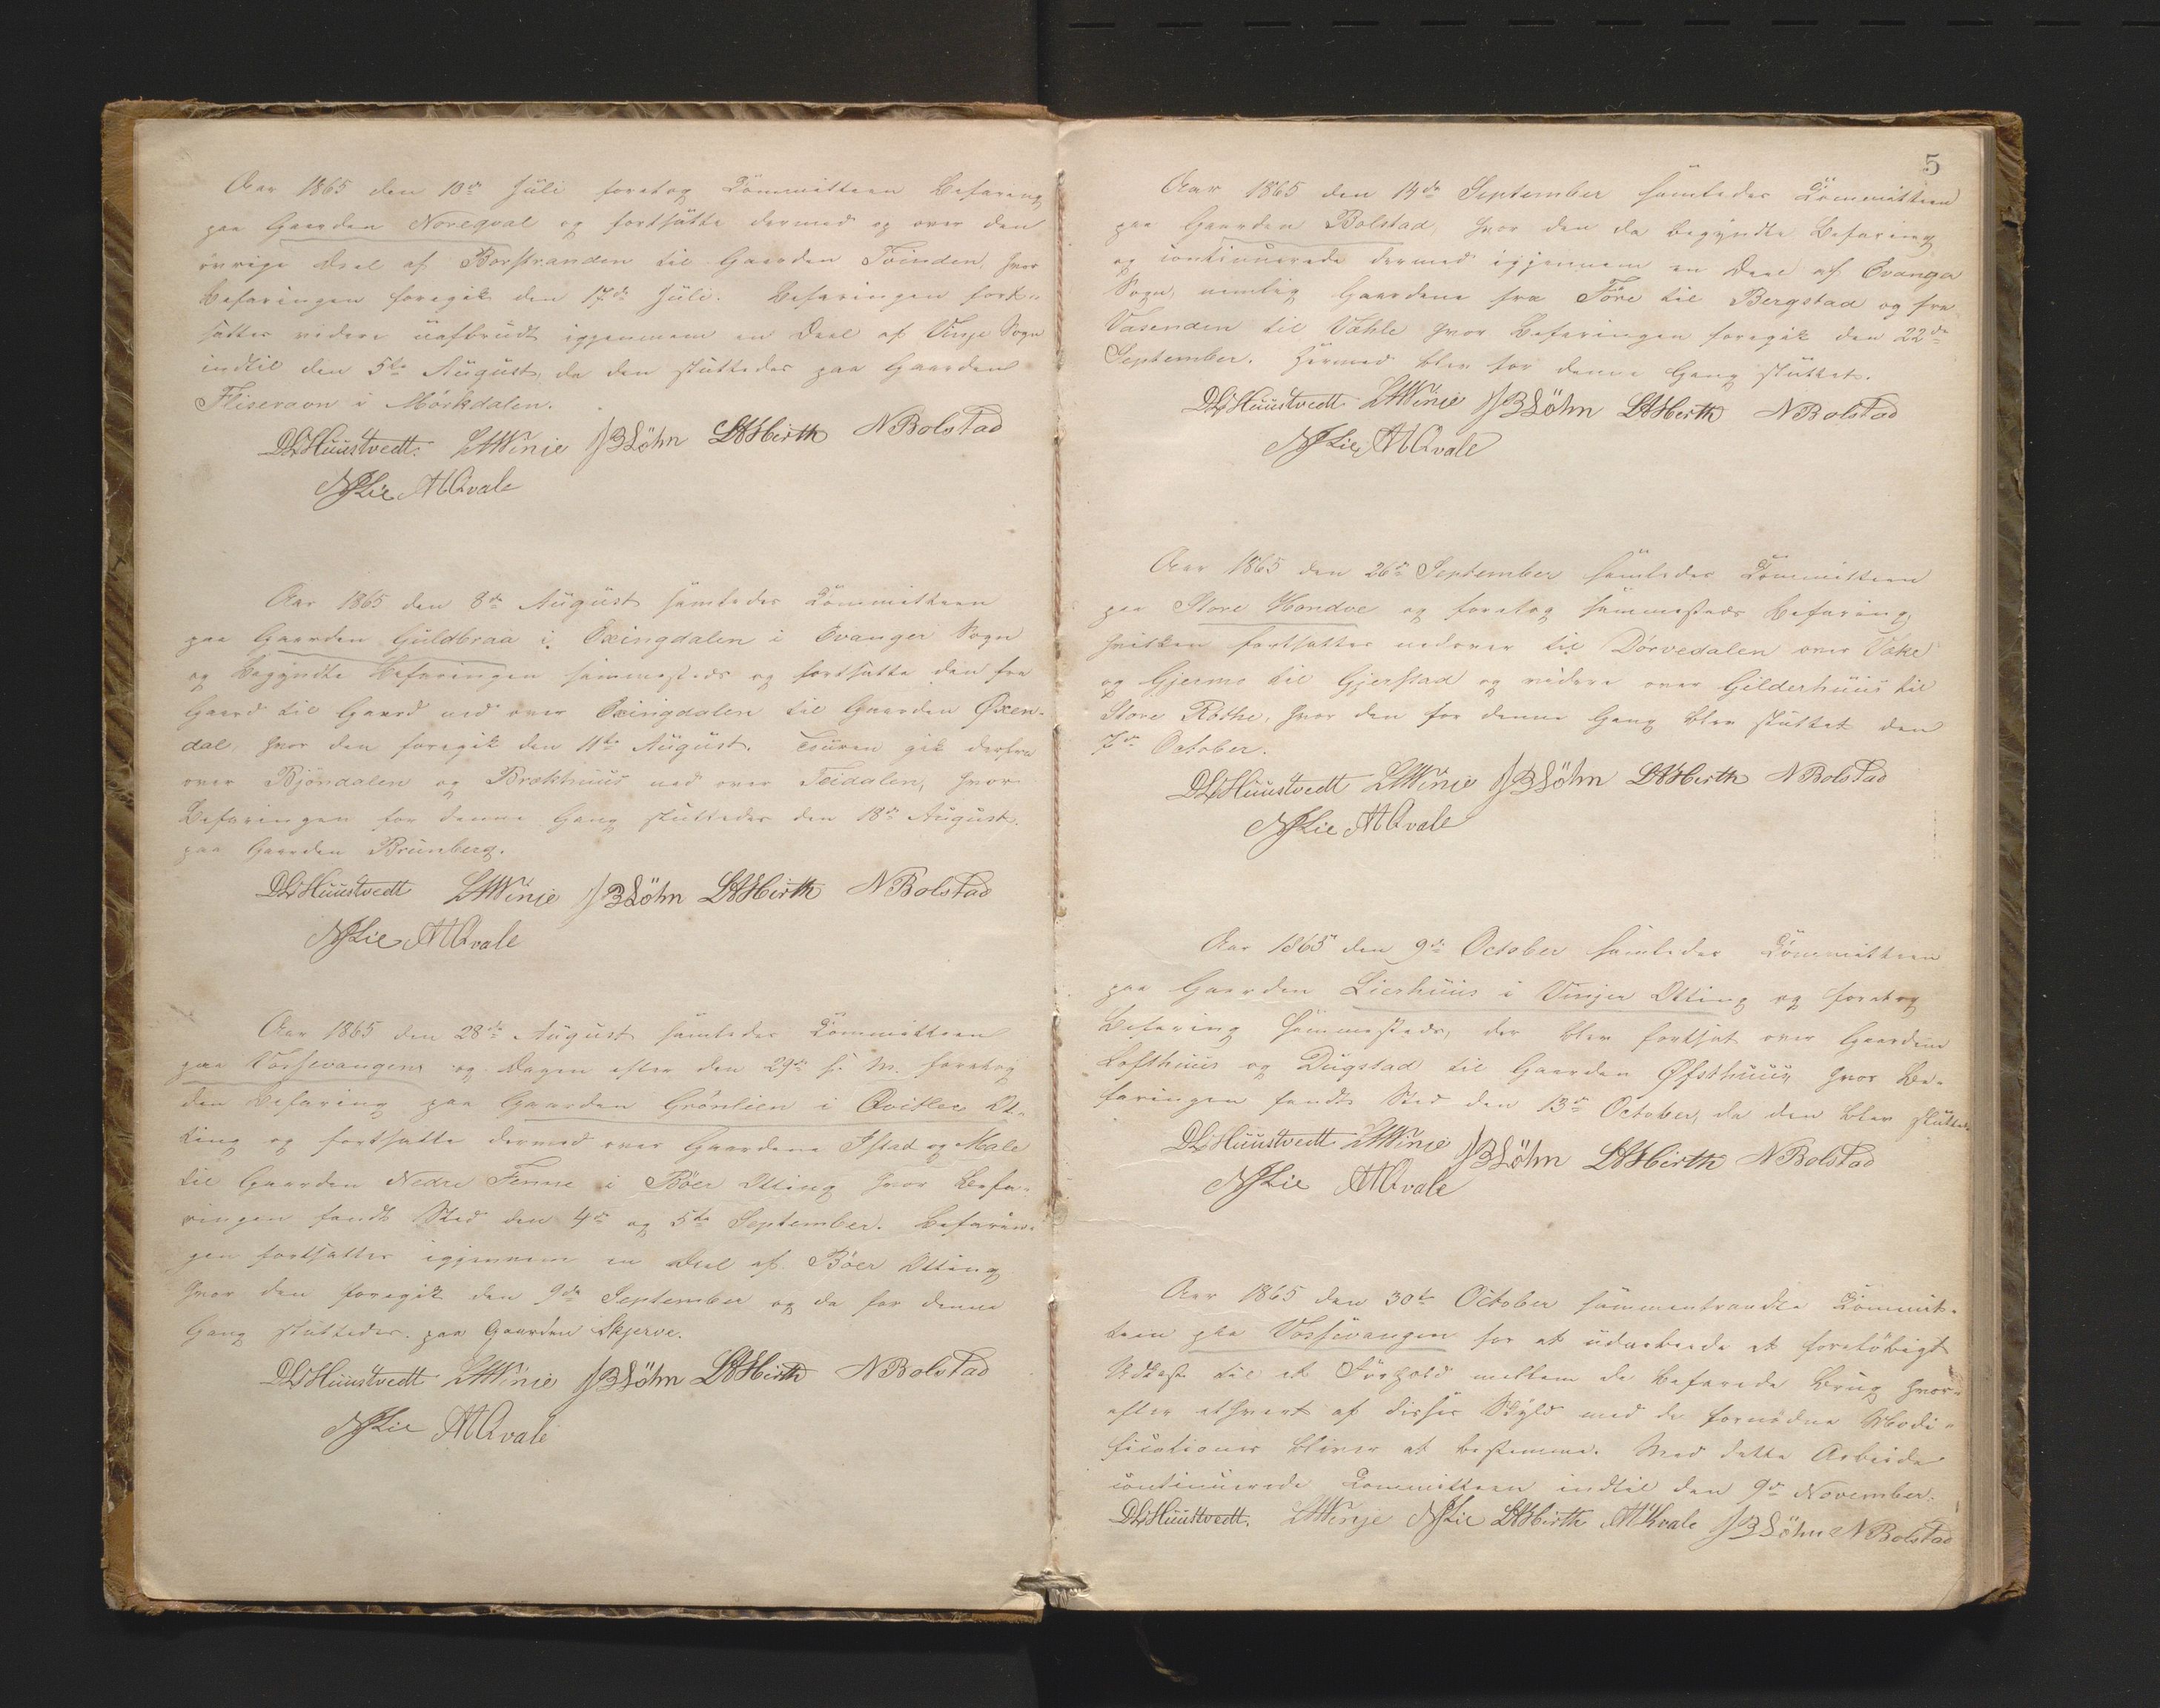 Aar 1865 den 10de Juli foretog Committeen Befaring
paa Gaarden Noreqval og fortsatte dermed og over den
øvrige Deel af Borstranden til Gaarden Tvinden, hvor
Befaringen foregik den 17de Juli. Befaringen fort-
sattes videre uafbrudt igjennem en Deel af Vinje Sogn
indtil den 5te August, da den sluttedes paa Gaarden
Fliseraon i Mörkdalen.
DLHuustvedt LAWinje JBLöhn LAHirth NBolstad
NJLie AAQvale
Aar 1865 den 8de August samledes Committeen
paa Gaarden Guldbraa i Exingdalen i Evanger Sogn
og begyndte Befaringen sammesteds og fortsatte den fra
Gaard til Gaard ned over Exingdalen til Gaarden Øxen-
dal, hvor den foregik den 11te August. Touren gik derfra
over Bjöndalen og Brækhuus ned over Teidalen, hvor
Befaringen for denne Gang sluttedes den 18de August
paa Gaarden Brunberg.
DLHuustvedt LAWinje JBLöhn LAHirth NBolstad
NJLie AAQvale
Aar 1865 den 28de August samledes Committeen
paa Vossevangen og Dagen efter den 29de s. M. foretog
den Befaring paa Gaarden Grönlien i Qvitler Ot-
ting og fortsatte dermed over Gaardene Istad og Male
til Gaarden Nedre Fenne i Böer Otting hvor Befa-
ringen fandt Sted den 4de og 5te September. Befarin-
gen fortsattes igjennem en Deel af Böer Otting
hvor den foregik den 9de September og da for denne
Gang sluttedes paa Gaarden Skjerve.
DLHuustvedt LAWinje JBLöhn LAHirth NBolstad
NJLie AAQvale
5
Aar 1865 den 14de September samledes Committeen
paa Gaarden Bolstad, hvor den da begyndte Befaring
og continuerede dermed igjennem en Deel af Evanger
Sogn, nemlig Gaardene fra Före til Bergstad og fra
Vasenden til Væhle hvor Befaringen foregik den 22de
September. Hermed blev for denne Gang sluttet.
DLHuustvedt LAWinje JBLöhn LAHirth NBolstad
NJLie AAQvale
Aar 1865 den 26de September samledes Committeen
paa Store Hondve og foretog sammesteds Befaring,
hvilken fortsattes nedover til Dörvedalen over Væke
og Gjerme til Gjerstad og videre over Gilderhuus til
Store Röthe, hvor den for denne Gang blev sluttet den
7de October.
DLHuustvedt LAWinje JBLöhn LAHirth NBolstad
NJLie AAQvale
Aar 1865 den 9de October samledes Committeen
paa Gaarden Lierhuus i Vinjer Otting og foretog
Befaring sammesteds, der blev fortsat over Gaardene
Lofthuus og Dugstad til Gaarden Øfsthuus, hvor Be-
faringen fandt Sted den 13de October, da den blev sluttet.
DLHuustvedt LAWinje JBLöhn LAHirth NBolstad
NJLie AAQvale
Aar 1865 den 30te October sammentraadte Commit-
teen paa Vossevangen for at udarbeide et foreløbigt
Udkast til et Forhold mellem de befarede Brug hvor-
efter ethvert af disses Skyld med de fornødne Modi-
ficationer bliver at bestemme. Med dette Arbeide
continuerede Committeen indtil den 9de November.
DLHuustvedt. LAWinje NJLie LAHirth AAKvale JBLöhn NBolstad